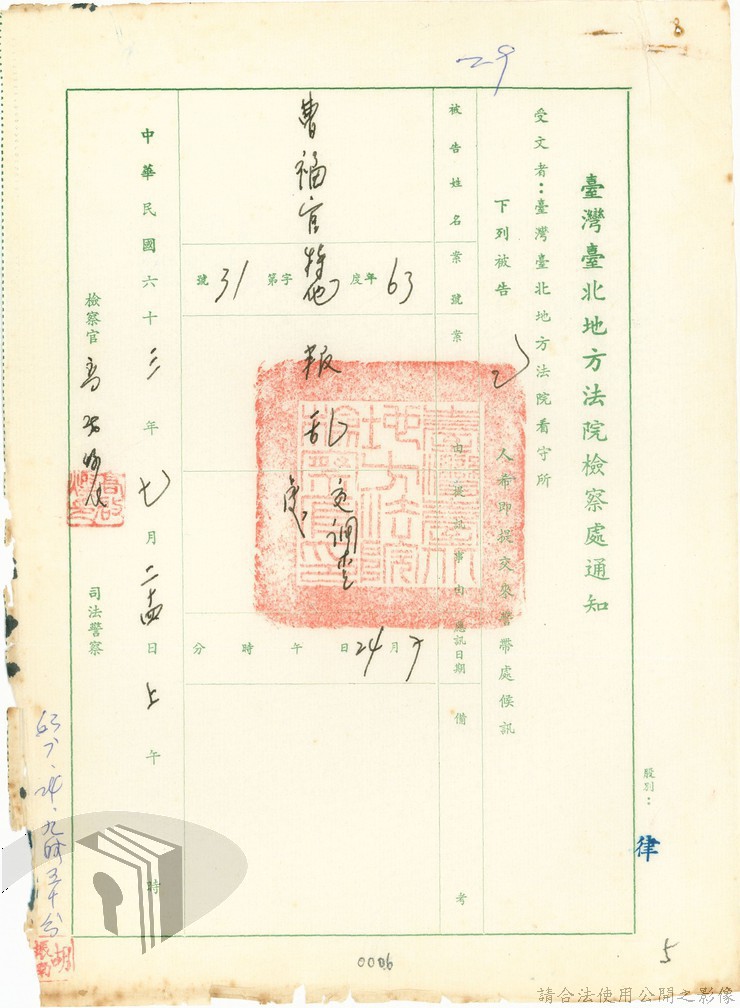 8
29
臺灣臺北地方法院檢察處通知
股別：
律
受文者：臺灣臺北地方法院看守所
下列被告
人希即提交來警帶處候訊
被告姓名
案號
案由
提訊事由
應訊日期
備考
曹福官
63年度特他字第31號
叛乱
交調查
7月24日午時分
中華民國六十三年七月二十四日上午時
檢察官
司法警察
63、7、24、九時五十分
胡
0006
5
請合法使用公開之影像